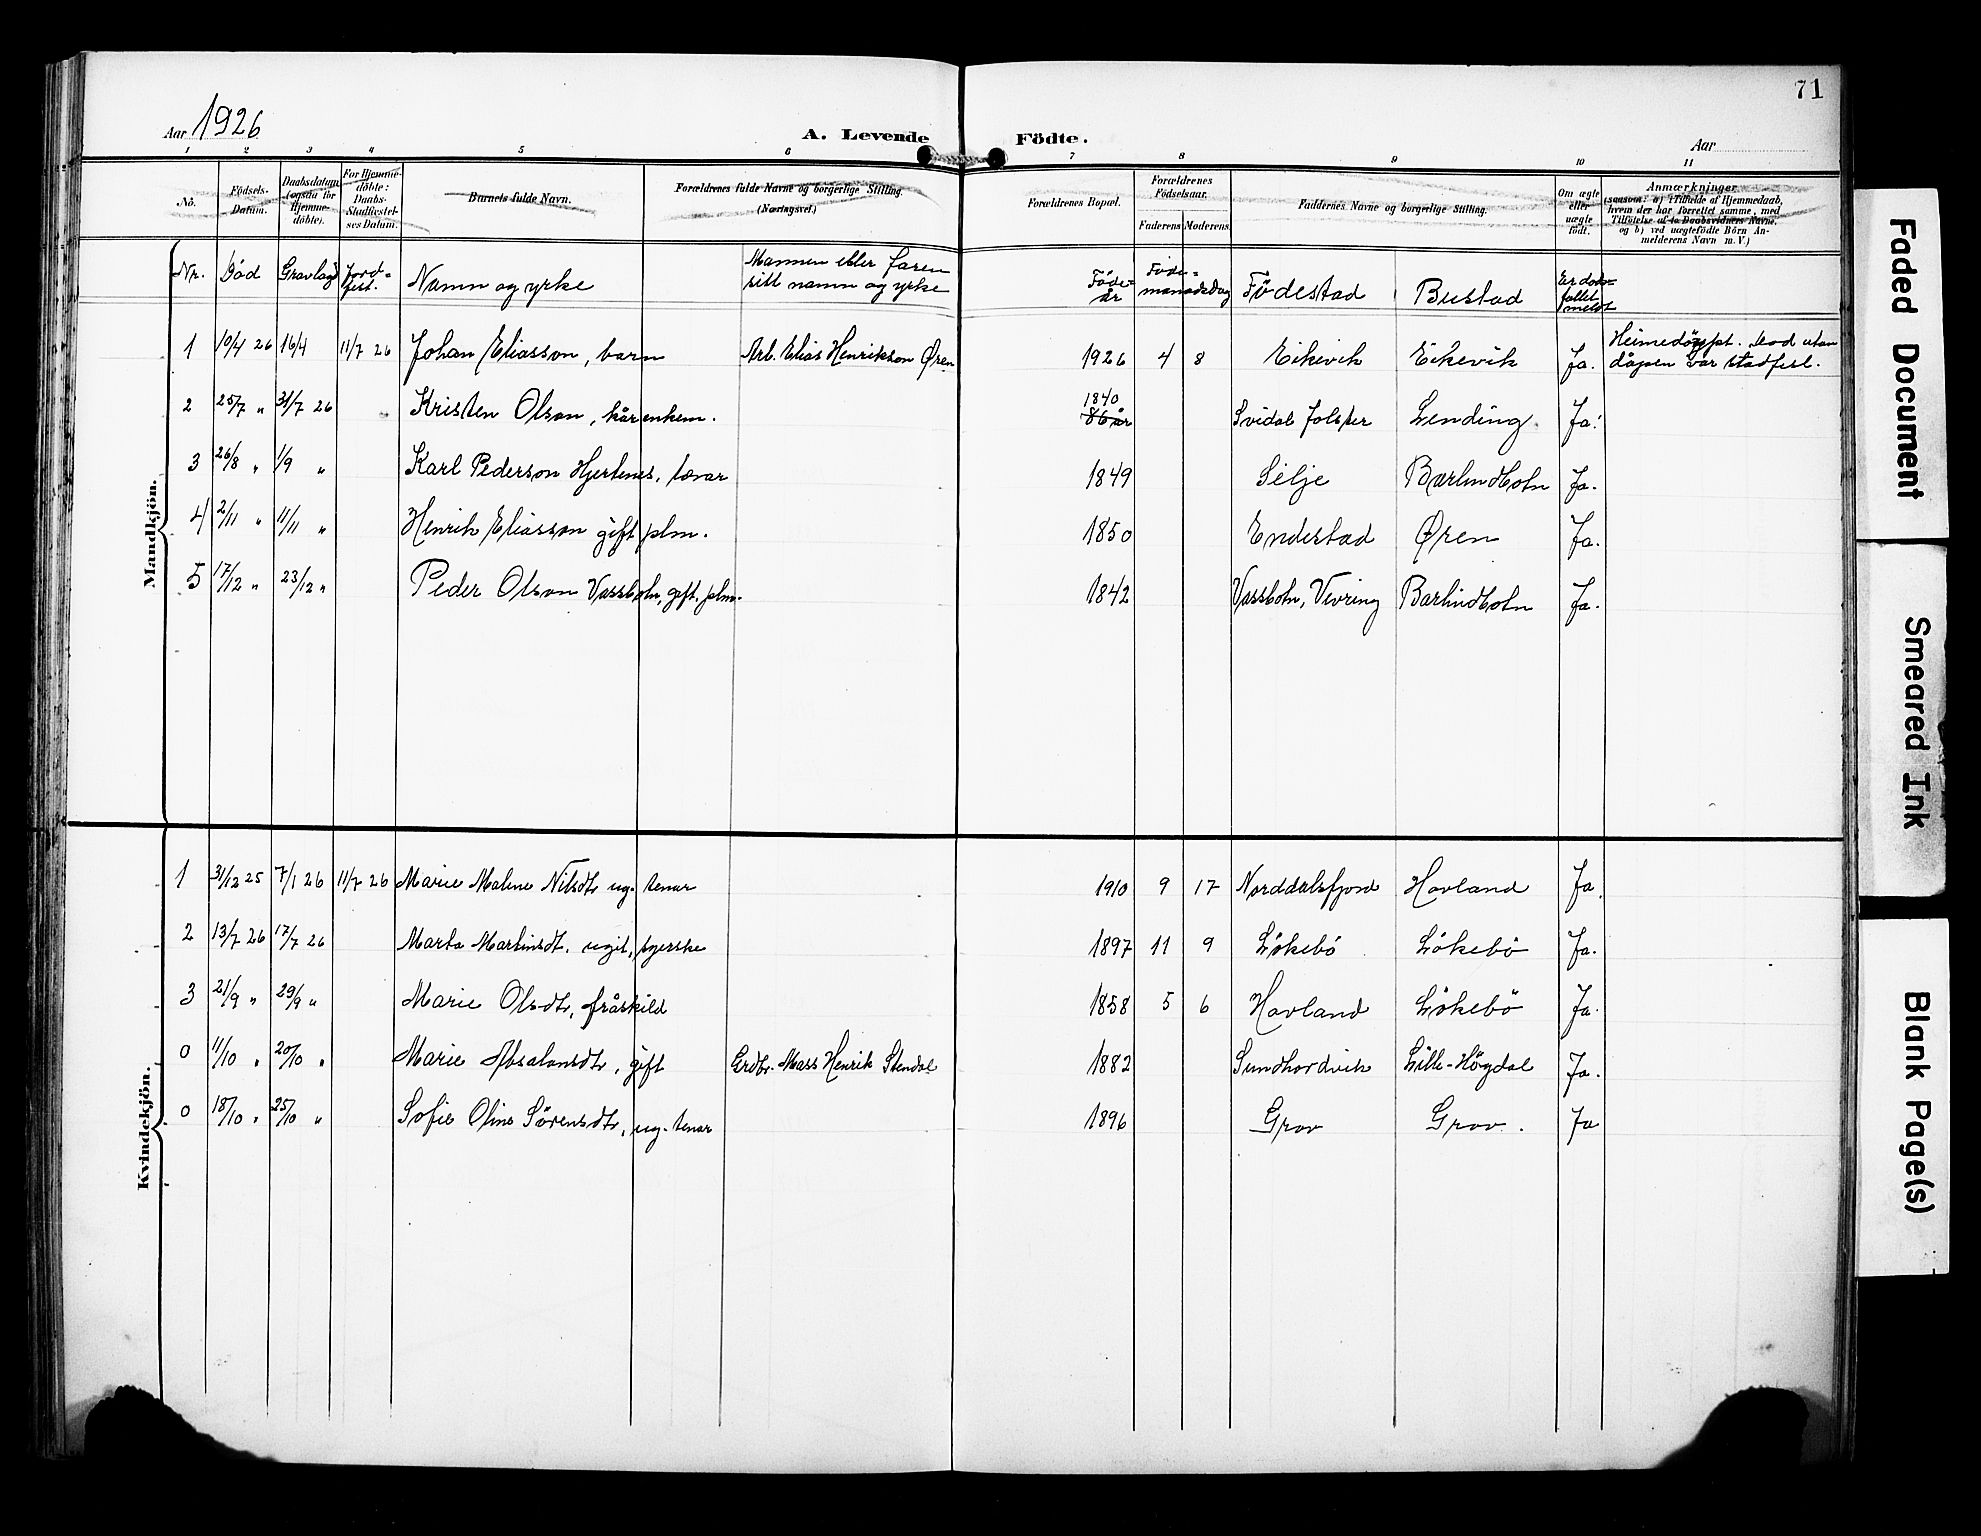 71
Aar 1926
A. Levende Födte.
Aar
1 2 3 4 5 6 7 8 9 10 11
No.
Födsels-Datum.
Daabsdatum (ogsaa for Hjemme-döbte).
For Hjemme-döbte: Daabs-Stadfæstel-ses Datum.
Barnets fulde Navn.
Forældrenes fulde Navne og borgerlige Stilling. (Næringsvei.)
Forældrenes Bopæl.
Forældrenes Födselsaar.
Faderens Moderens
Faddernes Navne og borgerlige Stilling.
Om ægte eller uægte födt.
Anmærkninger
(saasom: a) Tilfælde af Hjemmedaab, hvem der har forrettet samme, med Tilföielse af to Daabsvidners Navne. og b) ved uægtefödte Börn An-melderens Navn m. V.)
Nr. Död Gravlagd Jord-fest. Namn og yrke Mannen eller faren sitt namn og yrke Föde-år Föde-månadsdag Födestad Bustad Er döds-fallet meldt
Mandkjön.
1 10/4 26 16/4 11/7 26 Johan Eliasson, barn Arb. Elias Henrikson Øren 1926 4 8 Eikevik Eikevik Ja. Heimedöypt. Död utan dåpen var stadfest.
2 25/7 " 31/7 26 Kristen Olson, kårenkem. 1840 86 år Svidal Jolster Lending Ja.
3 26/8 " 1/9 " Karl Pederson Hjertenes, tævar 1849 Selje Barlindbotn Ja.
4 2/11 " 11/11 " Henrik Eliasson gift plm. 1850 Endestad Øren Ja.
5 17/12 " 23/12 " Peder Olson Vassbotn, gift. plm. 1842 Vassbotn, Vevring Barlindbotn Ja.
Kvindekjön.
1 31/12 25 7/1 26 11/7 26 Marie Maline Nilsdtr ug. tenar 1910 9 17 Norddalsfjord Hovland Ja.
2 13/7 26 17/7 26 Marta Martinsdt. ugit, syerske 1897 11 9 Lökebö Lökebö Ja.
3 21/9 " 29/9 " Marie Olsdtr, fråskild 1858 5 6 Hovland Lökebö Ja.
0 11/10 " 20/10 " Marie Absalonsdtr, gift Grdbr. Mass Henrik Stendal 1882 Sundhordvik Lille-Högdal Ja.
0 18/10 " 25/10 " Sofie Oline Sörensdtr, ug. tenar 1896 Grov Grov. Ja
Faded Document
Smeared Ink
Blank Page(s)